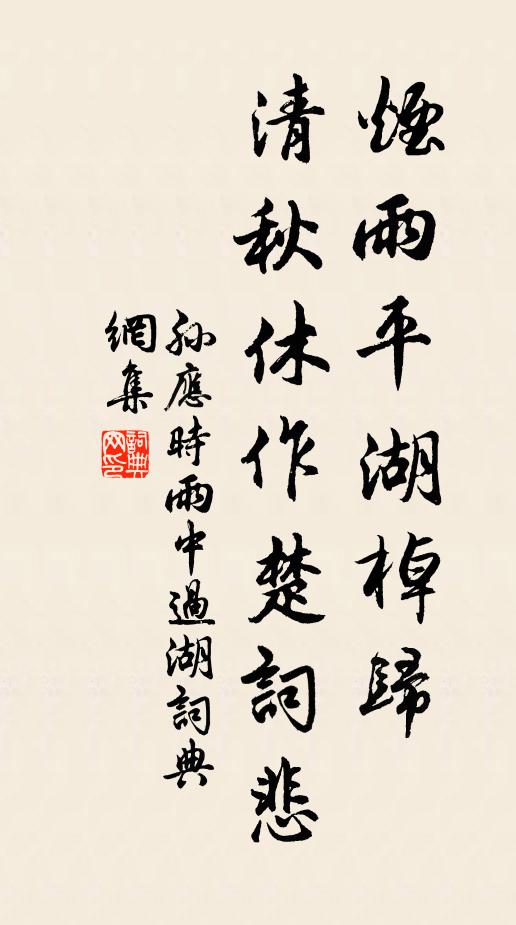 煙雨平湖棹歸
清秋休作楚詞悲
孫應時雨中過湖詞典
網集
詞典網印